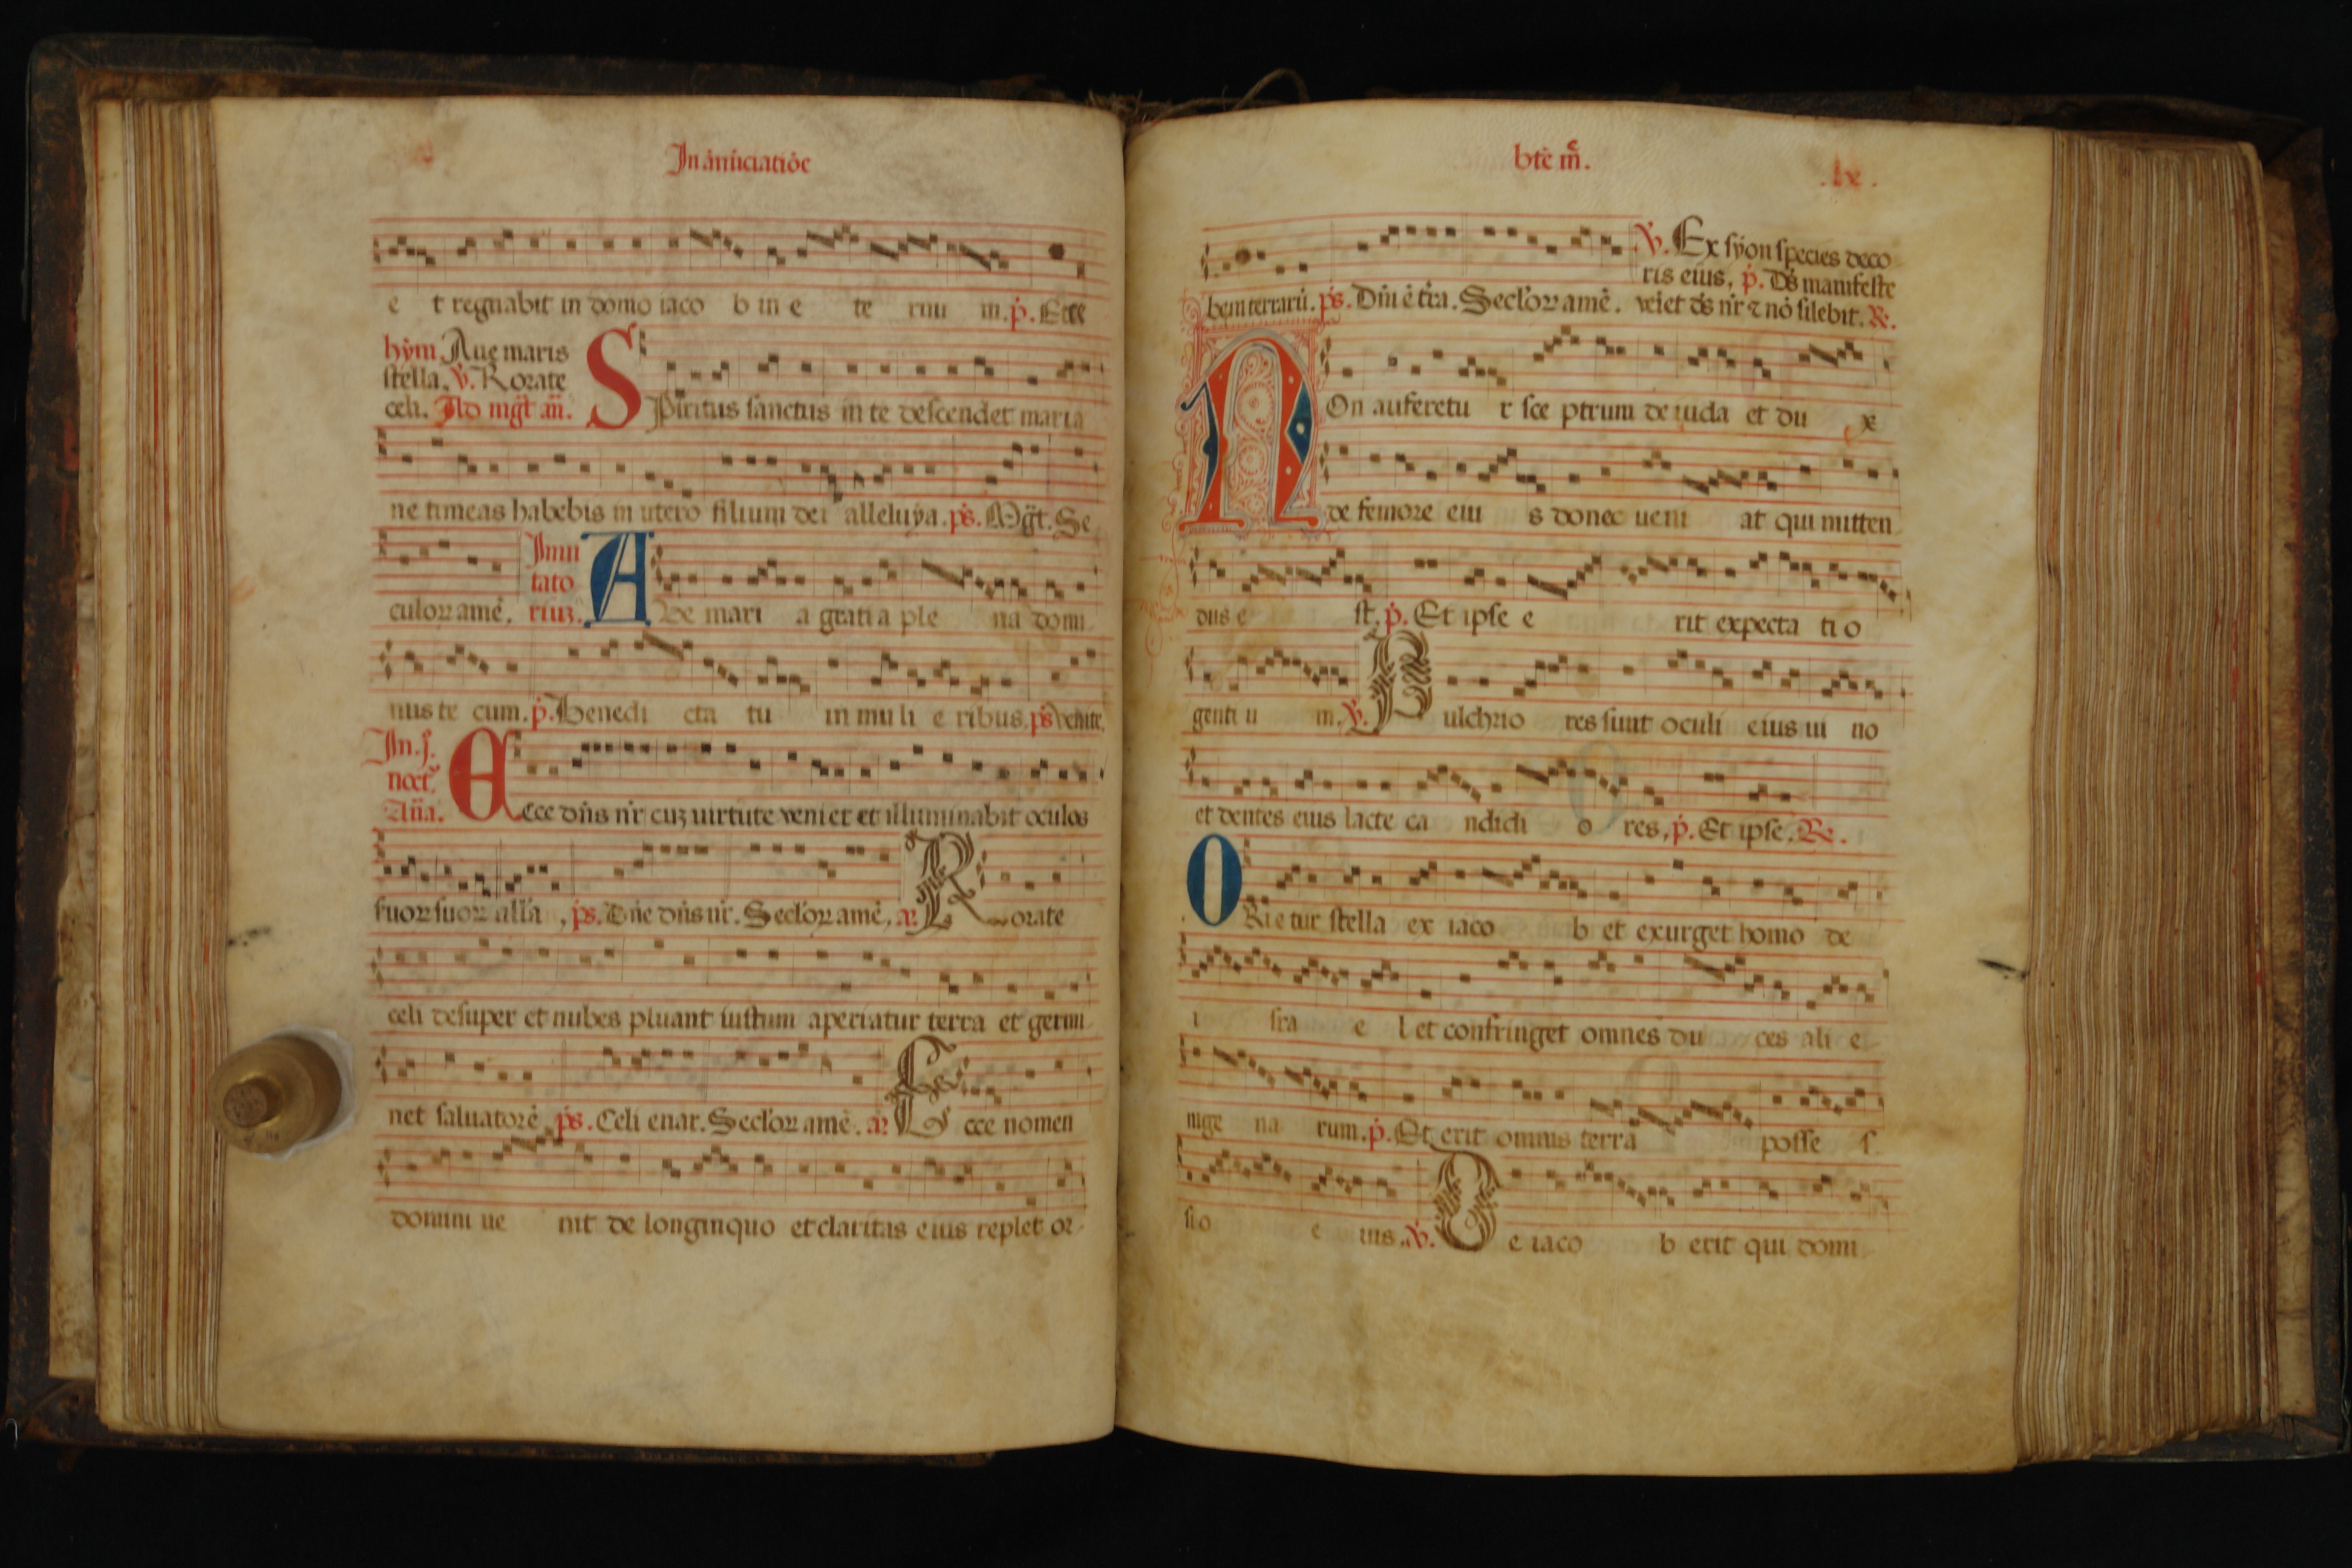 In ānūciatiōe
e t regnabit in domo iaco b in e te rnu m. p̄. Ecce
hȳm Aue maris
stella. v̄. Rorate
celi. Ad mḡt an̄.
SPiritus sanctus in te descendet maria
ne timeas habebis in utero filium dei alleluya. p̄s. Mḡt. Se
culoꝝ amē.
Inui
tato
riuꝫ.
AVe mari a grati a ple na domi
nus te cum. p̄. Benedi cta tu in mu li e ribus. p̄s venite.
In .j.
noct̄.
An̄a.
ECce dn̄s nr̄ cuꝫ uirtute veniet et illuminabit oculos
suoꝝ suoꝝ all'a, p̄s. Dn̄e dn̄s nr̄. Secl'oꝝ amē. añ Rorate
celi desuper et nubes pluant iustum aperiatur terra et germi
net saluatorē p̄s. Celi enar. Secl'oꝝ amē. añ Ecce nomen
domini ue nit de longinquo et claritas eius replet or
btē m̄.
.lx.
v̄. Ex syon species deco
ris eius. p̄. Ds̄ manifeste
bem terrarū. p̄s. Dn̄i ē tr̄a. Secl'oꝝ amē. veīet ds̄ nr̄ ⁊ nō silebit. R̄.
NOn auferetu r sce ptrum de iuda et du x
de femore eiu s donec ueni at qui mitten
dus e st. p̄. Et ipse e rit expecta ti o
genti u m. v̄. Pulchrio res sunt oculi eius ui no
et dentes eius lacte ca ndidi o res. p̄. Et ipse. R̄.
ORietur stella ex iaco b et exurget homo de
i sra e l et confringet omnes du ces ali e
nige na rum. p̄. Et erit omnis terra posse s
si o e ius. v̄. De iaco b erit qui domi